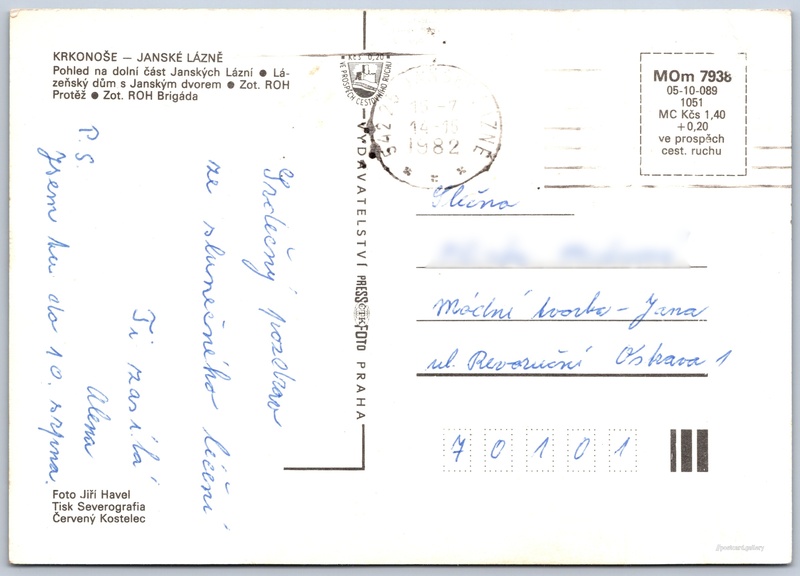 KRKONOŠE – JANSKÉ LÁZNĚ
Pohled na dolní část Janských Lázní ● Lá-
zeňský dům s Janským dvorem ● Zot. ROH
Protěž ● Zot. ROH Brigáda
P.S.
Jsem tu do 10. srpna.
Srdečný pozdrav
ze slunečného léčení
Ti zasílá
Alena
Foto Jiří Havel
Tisk Severografia
Červený Kostelec
VYDAVATELSTVÍ PRESSFOTO PRAHA
ČTK
Kčs 0,20
VE PROSPĚCH CESTOVNÍHO RUCHU
542 25
LÁZNĚ
14-15
1982
MOm 7938
05-10-089
1051
MC Kčs 1,40
+0,20
ve prospěch
cest. ruchu
Slečna
Módní tvorba – Jana
ul. Revoluční Ostrava 1
7 0 1 0 1
//postcard.gallery